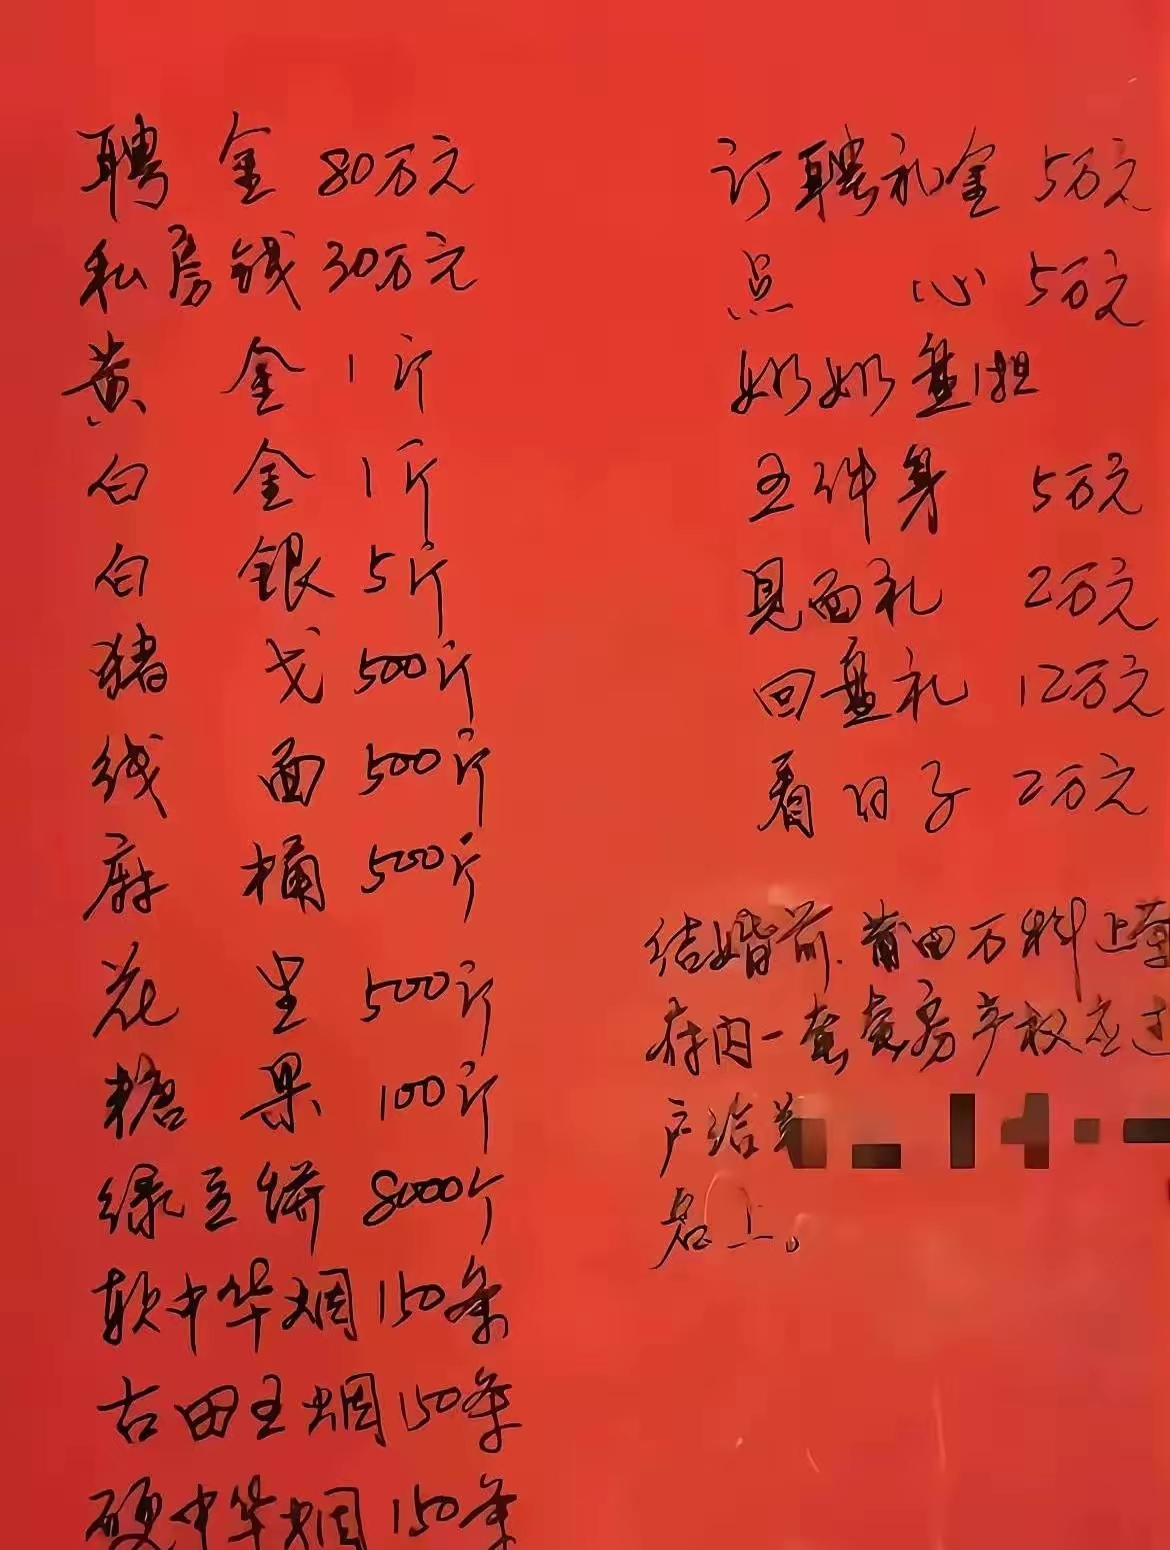 聘金 80万元
私房钱 30万元
黄金 1斤
白金 1斤
白银 5斤
猪 500斤
线面 500斤
麻桶 500斤
花 500斤
糖果 100斤
绿豆饼 8000个
软中华烟 150条
古田王烟 150条
硬中华烟 150条
订聘礼金 5万元
点心 5万元
奶奶盘1担
五件身 5万元
见面礼 2万元
回盘礼 12万元
看日子 2万元
结婚前.莆田万科上
存内一套套房产权应过
户给
名上。